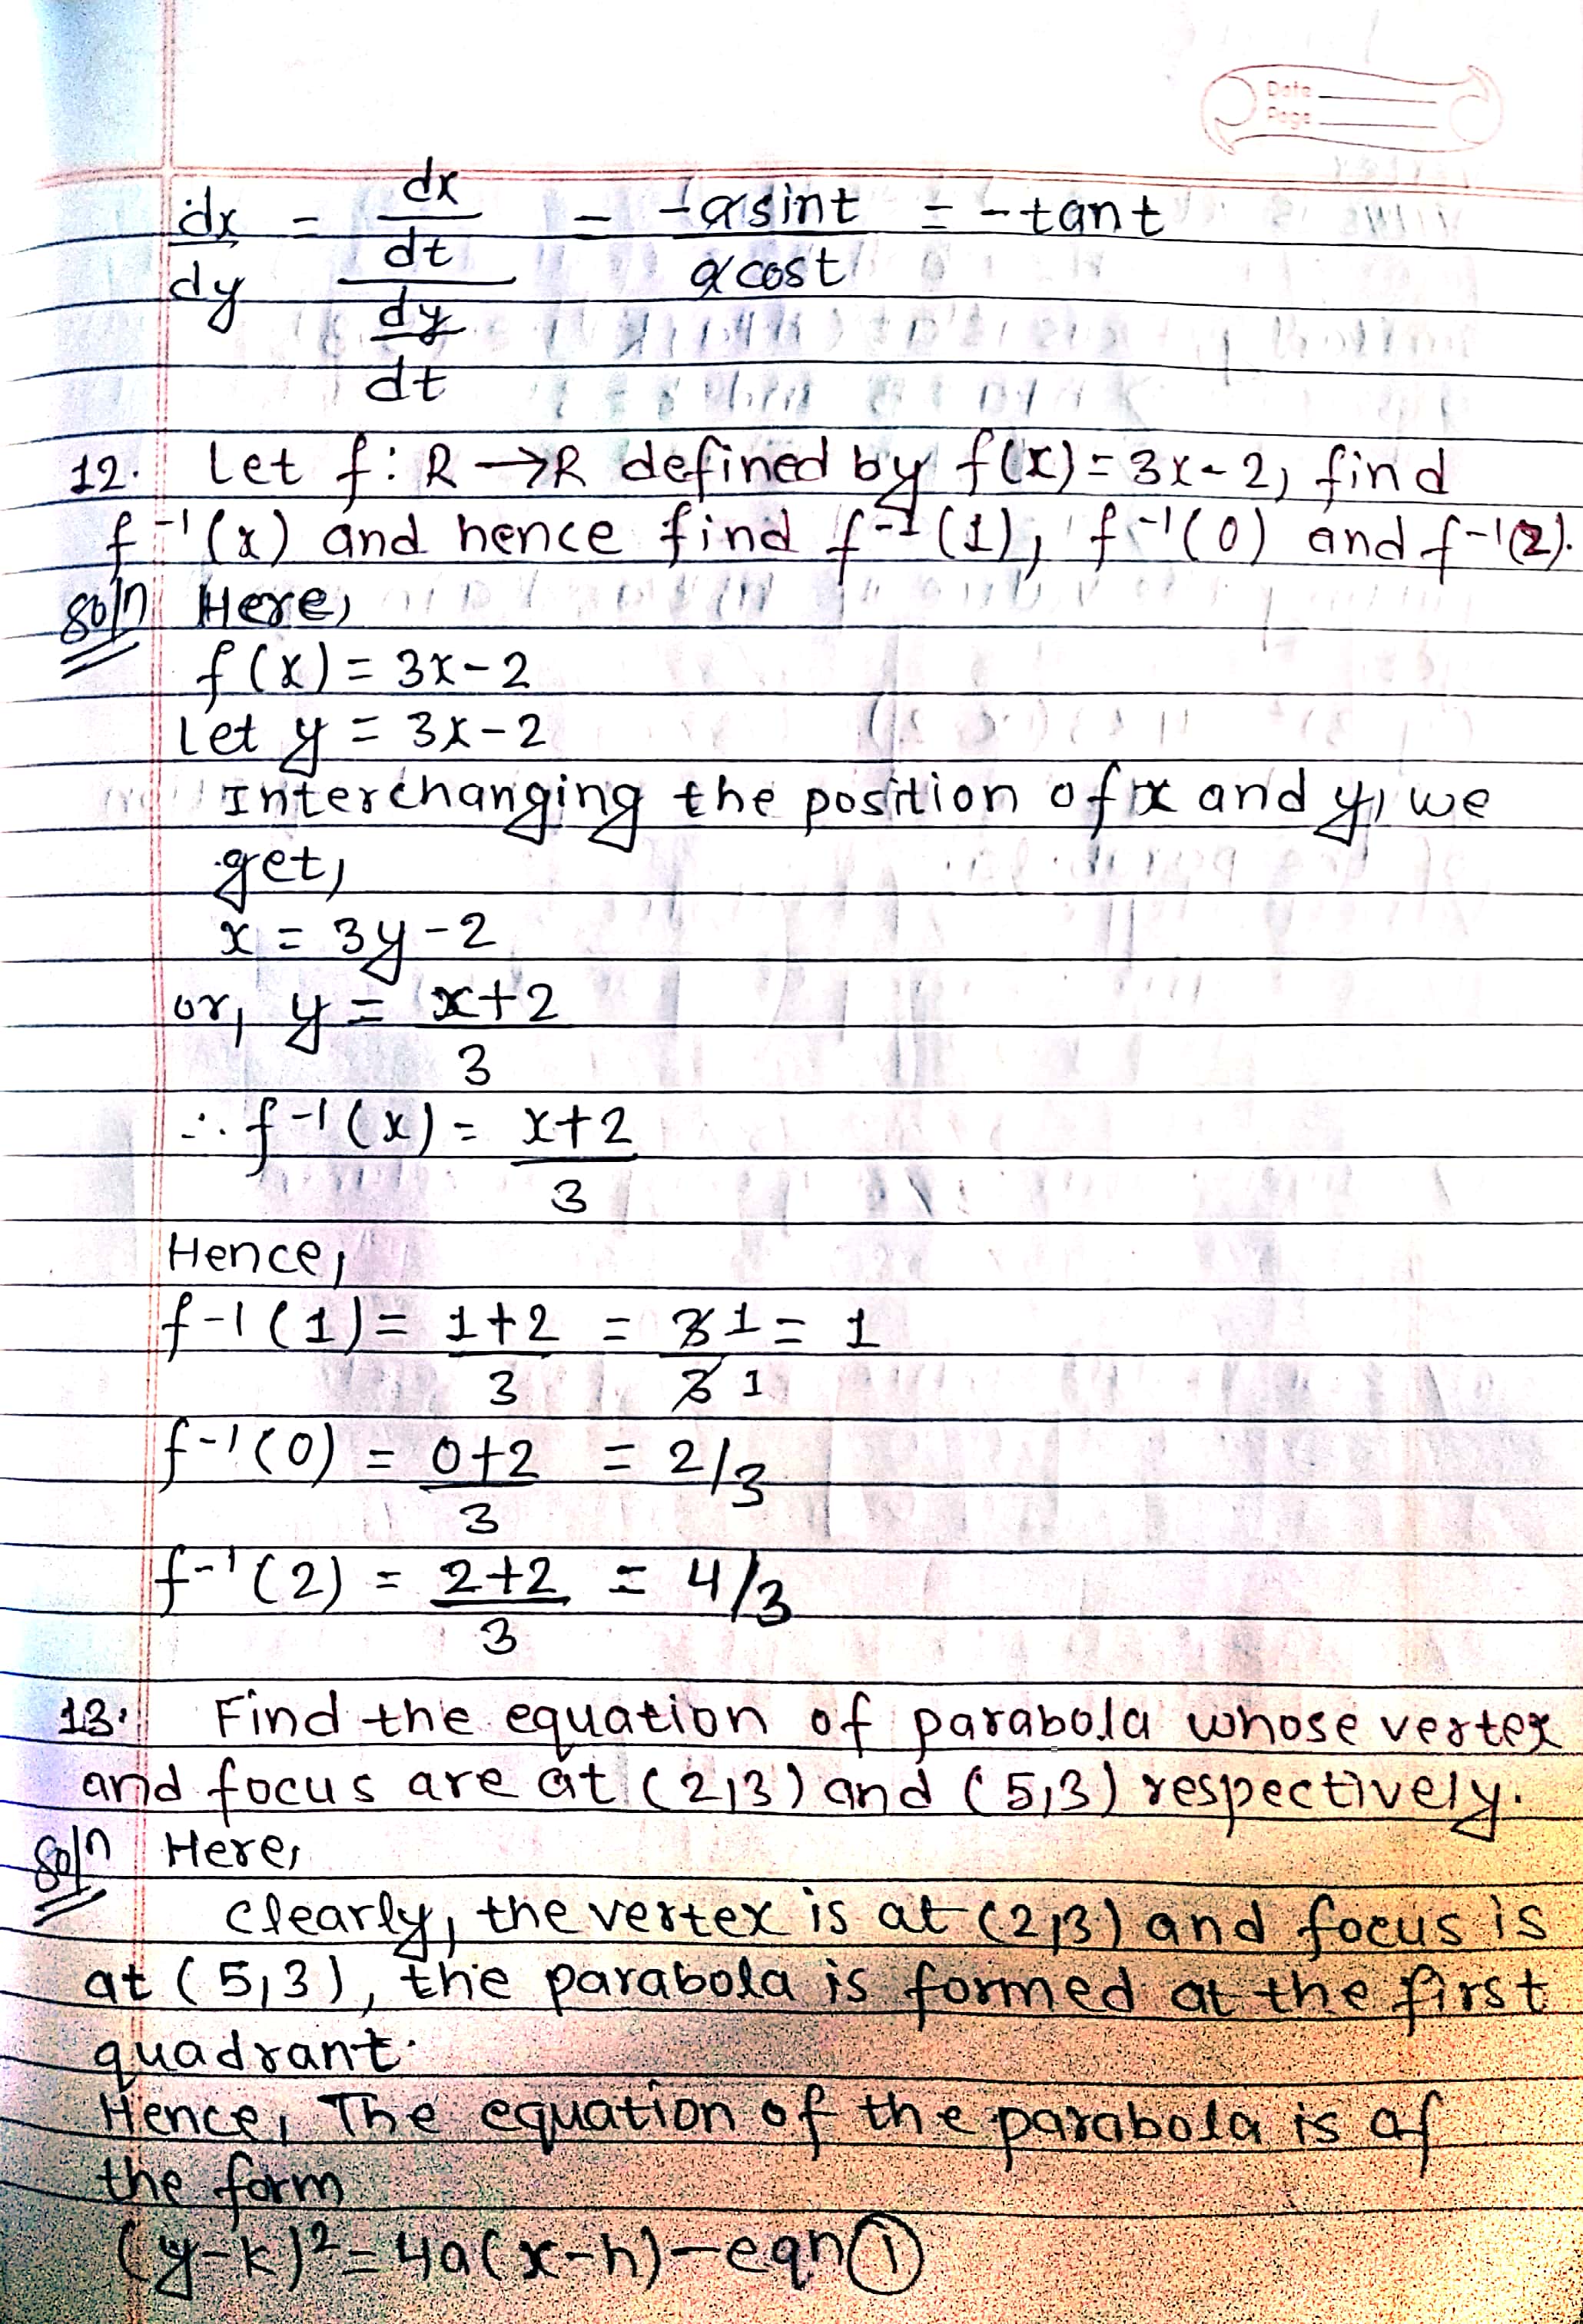 Date
Page
dx/dy = (dx/dt)/(dy/dt) = -a sint / a cost = -tant
12. Let f: R→R defined by f(x)=3x-2, find
f⁻¹(x) and hence find f⁻¹(1), f⁻¹(0) and f⁻¹(2).
Soln Here,
f(x) = 3x-2
Let y = 3x-2
Interchanging the position of x and y, we
get,
x = 3y-2
or, y = x+2/3
∴ f⁻¹(x) = x+2/3
Hence,
f-1(1) = 1+2/3 = 3 1/3 1 = 1
f⁻¹(0) = 0+2/3 = 2/3
f⁻¹(2) = 2+2/3 = 4/3
13. Find the equation of parabola whose vertex
and focus are at (2,3) and (5,3) respectively.
Soln Here,
Clearly, the vertex is at (2,3) and focus is
at (5,3), the parabola is formed at the first
quadrant.
Hence, The equation of the parabola is of
the form
(y-k)² = 4a(x-h) - eqn ①